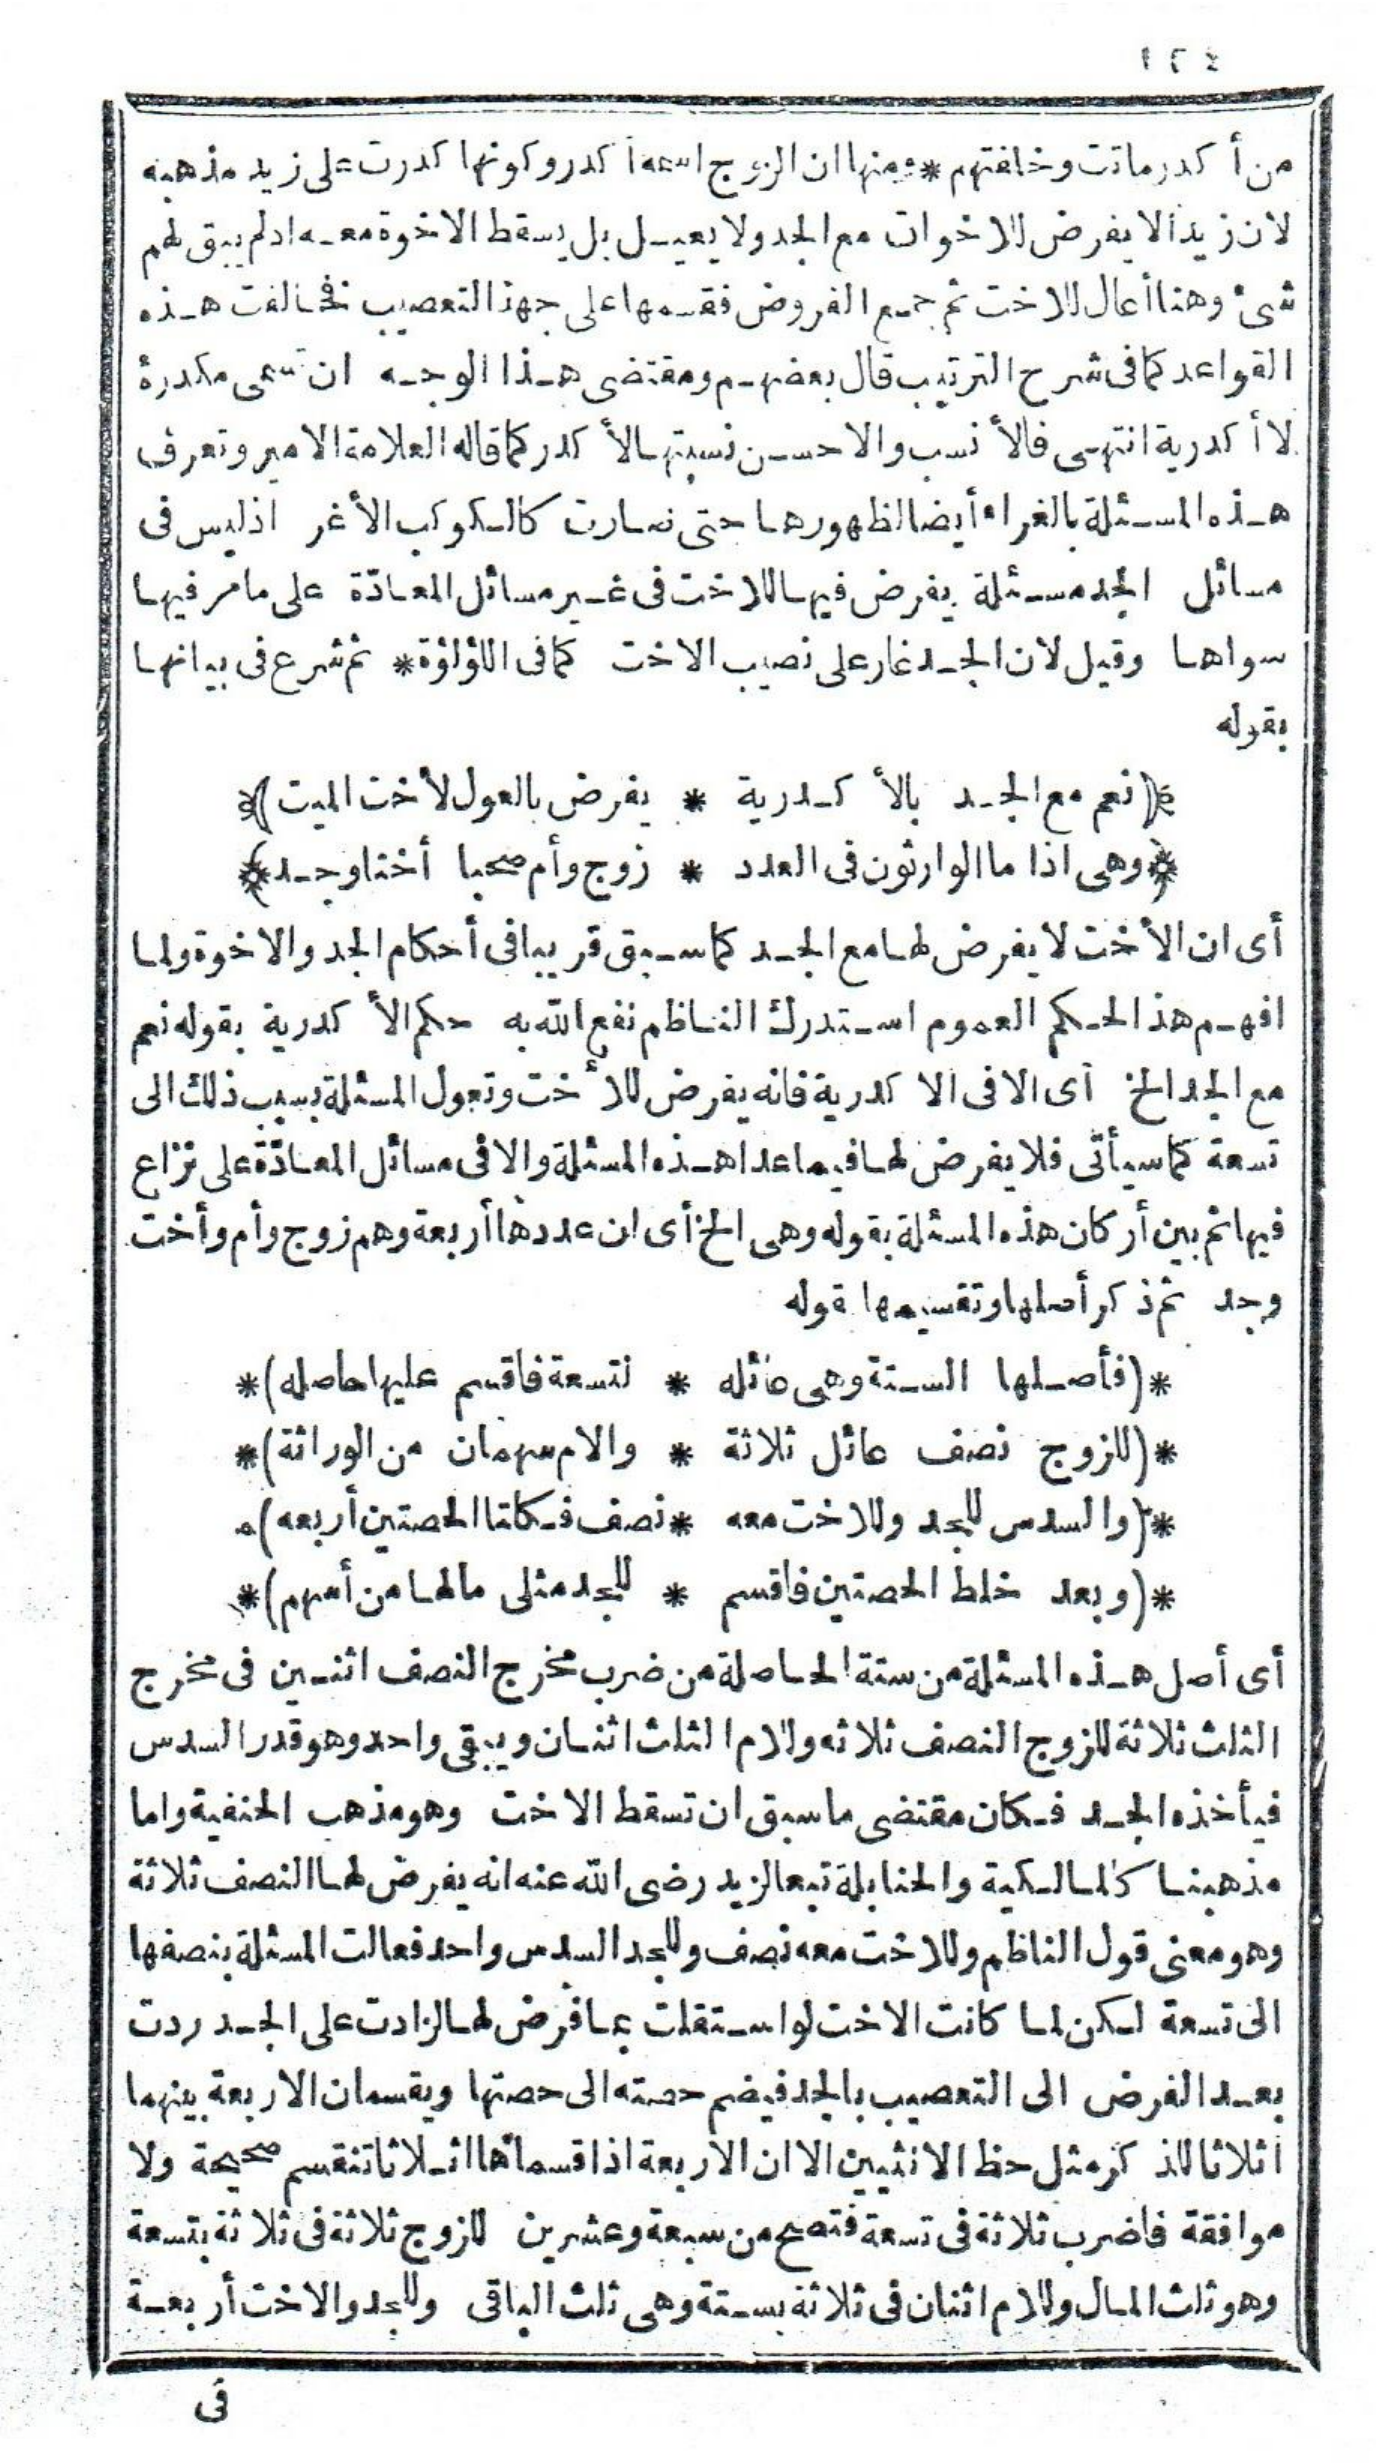 ١٢٤
من أكدر ماتت وخلفتهم * ومنها ان الزوج اسمه أكدر وكونها كدرت على زيد مذهبه
لان زيدا لا يفرض للاخوات مع الجد ولا يعيل بل يسقط الاخوة معه اذ لم يبق لهم
شئ وهنا أعال للاخت ثم جمع الفروض فقسمها على جهة التعصيب فخالفت هذه
القواعد كما فى شرح الترتيب قال بعضهم ومقتضى هذا الوجه ان تسمى مكدرة
لا أكدرية انتهى فالأنسب والاحسن نسبتها لأكدر كما قاله العلامة الامير وتعرف
هذه المسئلة بالغراء أيضا لظهورها حتى صارت كالكوكب الأغر اذ ليس فى
مسائل الجد مسئلة يفرض فيها للاخت فى غير مسائل المعادّة على ما مر فيها
سواها وقيل لان الجد غار على نصيب الاخت كما فى اللؤلؤة * ثم شرع فى بيانها
بقوله
﴿(نعم مع الجد بالأكدرية * يفرض بالعول لأخت الميت)﴾
﴿وهى اذا ما الوارثون فى العدد * زوج وأم صحبا أختا وجد﴾
أى ان الأخت لا يفرض لها مع الجد كما سبق قريبا فى أحكام الجد والاخوة ولما
افهم هذا الحكم العموم استدرك الناظم نفع الله به حكم الأكدرية بقوله نعم
مع الجد الخ أى الا فى الاكدرية فانه يفرض للأخت وتعول المسئلة بسبب ذلك الى
تسعة كما سيأتى فلا يفرض لها فيما عدا هذه المسئلة والا فى مسائل المعادّة على نزاع
فيها ثم بين أركان هذه المسئلة بقوله وهى الخ أى ان عددها أربعة وهم زوج وأم وأخت
وجد ثم ذكر أصلها وتقسيمها بقوله
*(فأصلها الستة وهى عائله * لتسعة فاقسم عليها حاصله)*
*(للزوج نصف عائل ثلاثة * والام سهمان من الوراثة)*
*(والسدس للجد وللاخت معه * نصف فكانتا الحصتين أربعه)*
*(وبعد خلط الحصتين فاقسم * للجد مثلى مالها من أسهم)*
أى أصل هذه المسئلة من ستة الحاصلة من ضرب مخرج النصف اثنين فى مخرج
الثلث ثلاثة للزوج النصف ثلاثه وللام الثلث اثنان ويبقى واحد وهو قدر السدس
فيأخذه الجد فكان مقتضى ما سبق ان تسقط الاخت وهو مذهب الحنفية واما
مذهبنا كالمالكية والحنابلة تبعا لزيد رضى الله عنه انه يفرض لها النصف ثلاثة
وهو معنى قول الناظم وللاخت معه نصف وللجد السدس واحد فعالت المسئلة بنصفها
الى تسعة لكن لما كانت الاخت لو استقلت بما فرض لها لزادت على الجد ردت
بعد الفرض الى التعصيب بالجد فيضم حصته الى حصتها ويقسمان الاربعة بينهما
اثلاثا للذكر مثل حظ الانثيين الا ان الاربعة اذا قسمناها اثلاثا تنقسم صحيحة ولا
موافقة فاضرب ثلاثة فى تسعة فتصح من سبعة وعشرين للزوج ثلاثة فى ثلاثة بتسعة
وهو ثلث المال وللام اثنان فى ثلاثة بستة وهى ثلث الباقى وللجد والاخت أربعة
فى